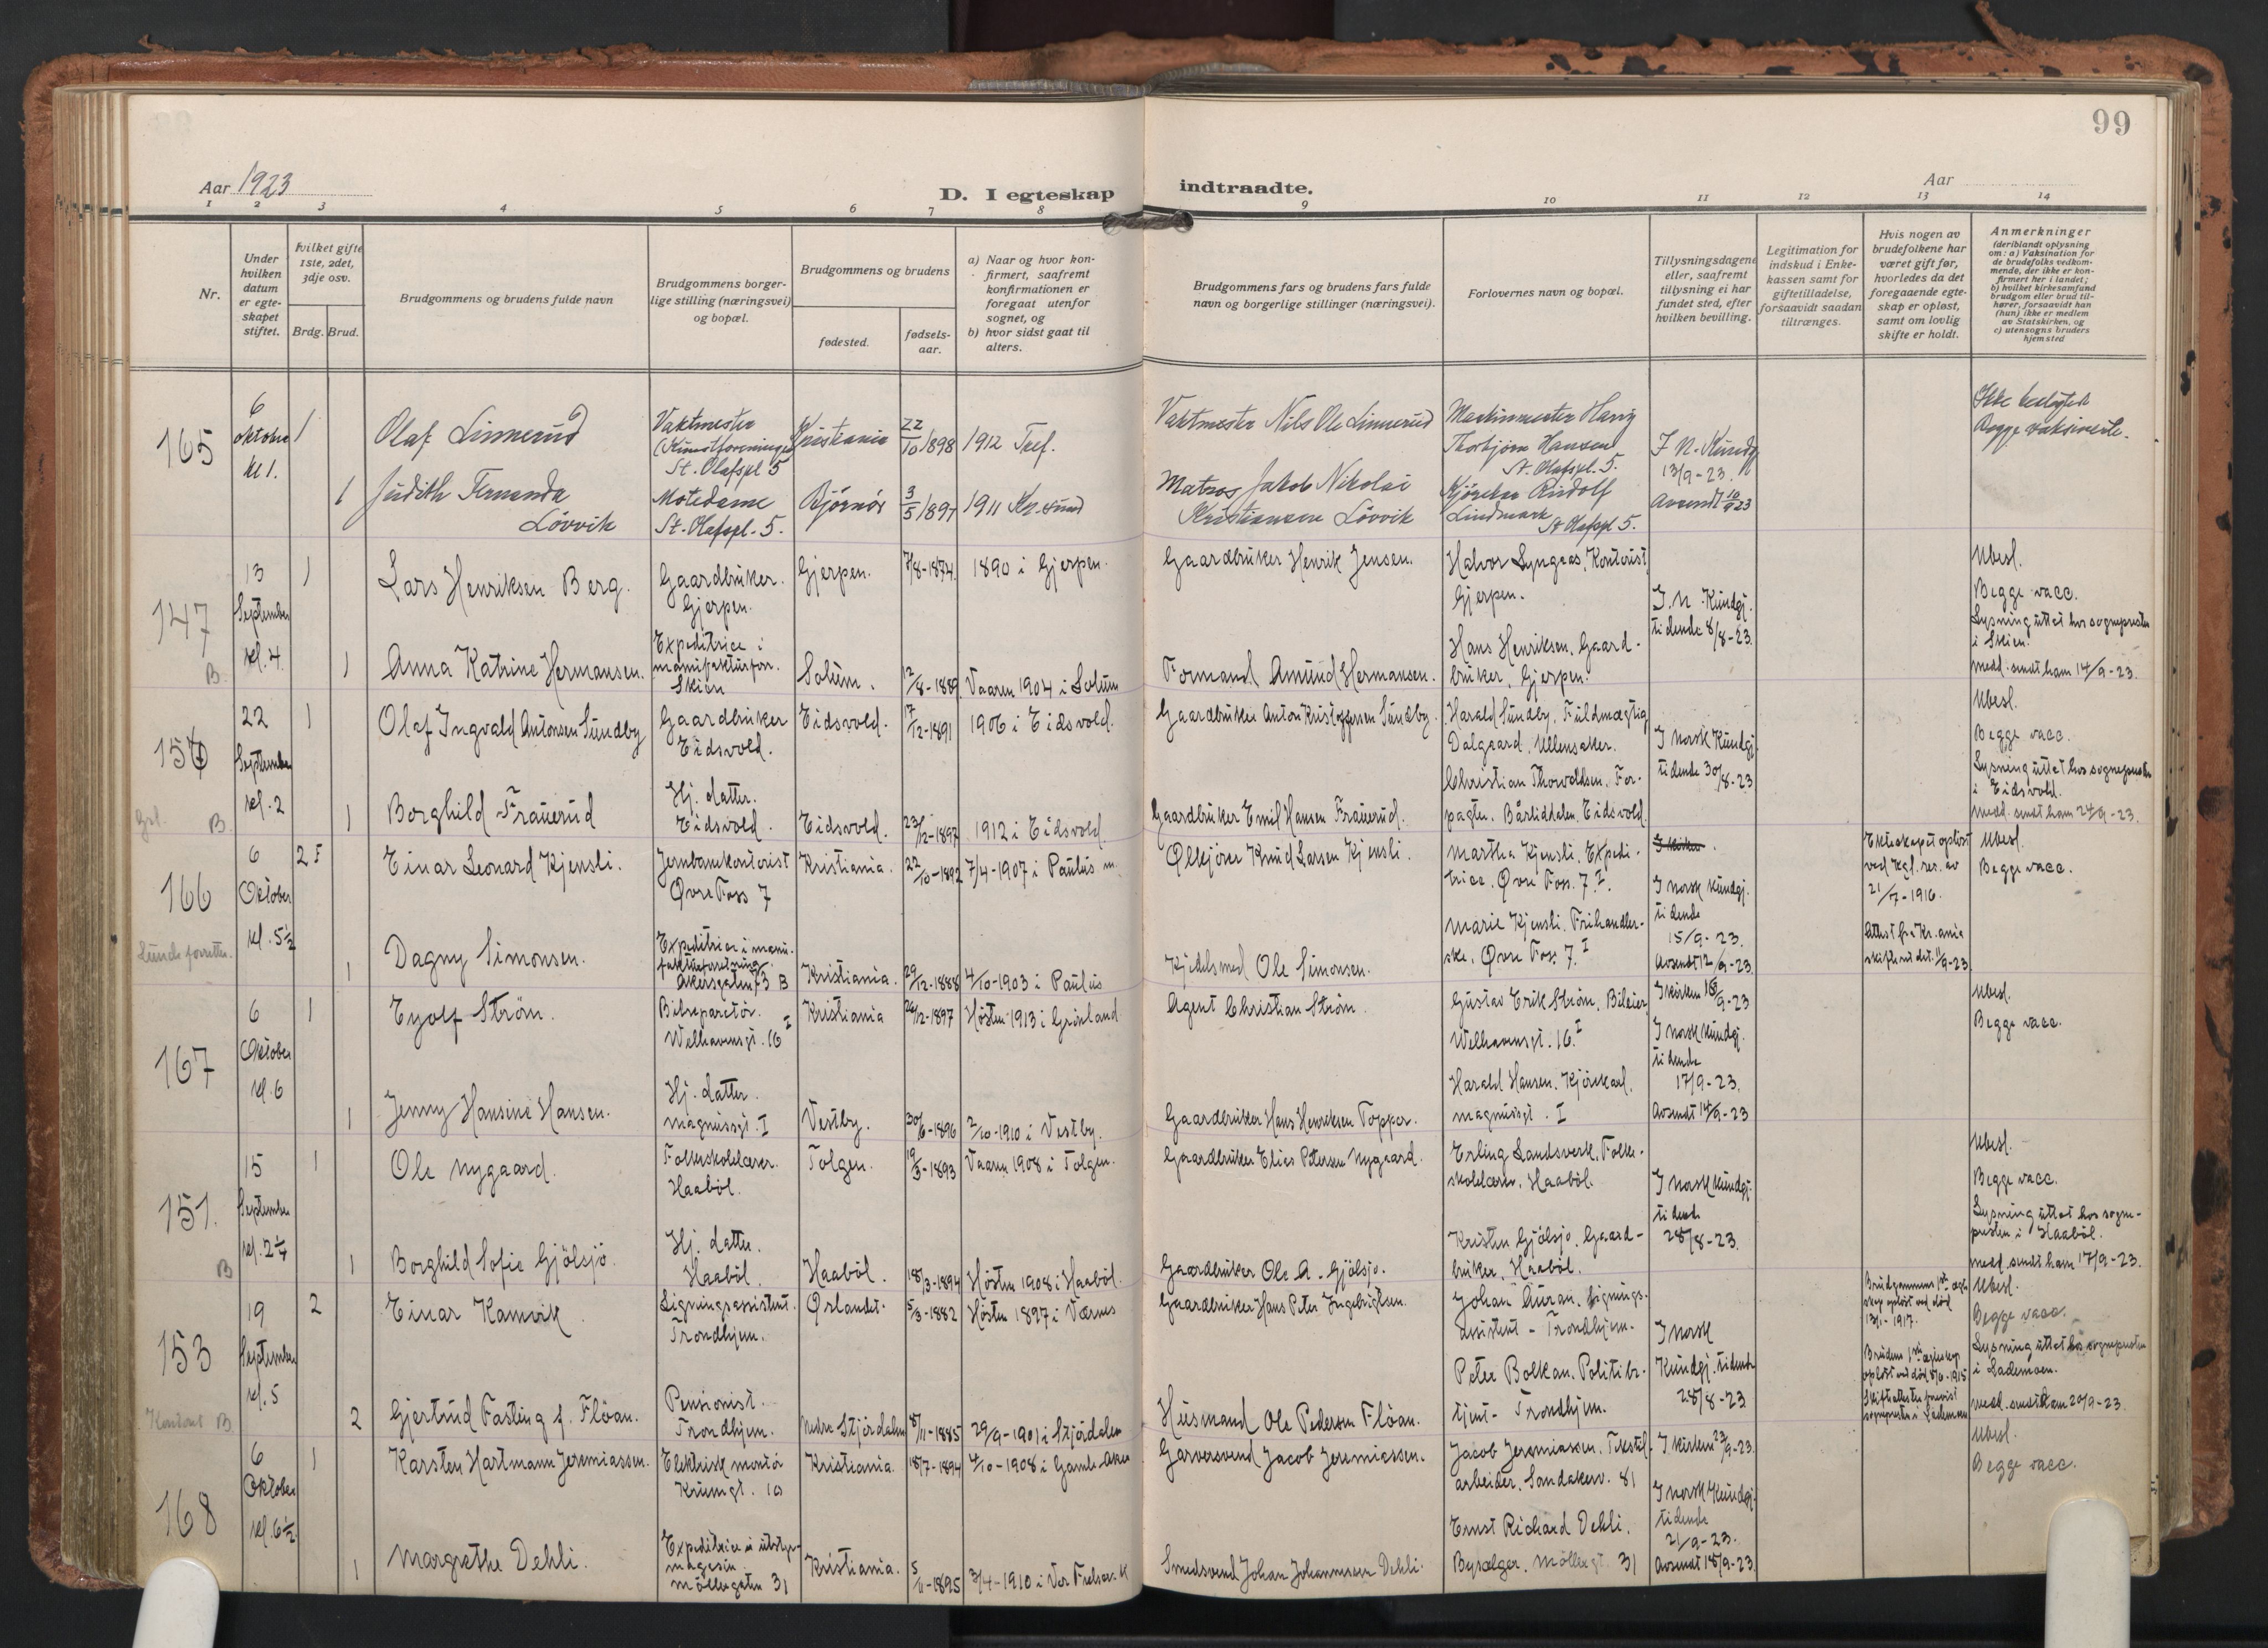 99
Aar 1923
D. I egteskap indtraadte.
Aar
1 2 3 4 5 6 7 8 9 10 11 12 13 14
Nr.
Under hvilken datum er egte-skapet stiftet.
Hvilket gifte 1ste, 2det, 3dje osv.
Brdg. Brud.
Brudgommens og brudens fulde navn
Brudgommens borger-lige stilling (næringsvei) og bopæl.
Brudgommens og brudens
fødested.
fødsels-aar.
a) Naar og hvor kon-firmert, saafremt konfirmationen er foregaat utenfor sognet, og
b) hvor sidst gaat til alters.
Brudgommens fars og brudens fars fulde navn og borgerlige stillinger (næringsvei).
Forlovernes navn og bopæl.
Tillysningsdagene eller, saafremt tillysning ei har fundet sted, efter hvilken bevilling.
Legitimation for indskud i Enke-kassen samt for giftetilladelse, forsaavidt saadan tiltrænges.
Hvis nogen av brudefolkene har været gift før, hvorledes da det foregaaende egte-skap er opløst, samt om lovlig skifte er holdt.
Anmerkninger
(deriblandt oplysning om: a) Vaksination for de brudefolks vedkom-mende, der ikke er kon-firmert her i landet; b) hvilket kirkesamfund brudgom eller brud til-hører, forsaavidt han (hun) ikke er medlem av Statskirken, og c) utensogns bruders hjemsted
165
6 oktober kl 1.
1 Olaf Linnerud
Vaktmester (Kunstforeningen) St. Olafspl 5
Kristiania 22/10 1898 1912 Tref.
Vaktmester Nils Ole Linnerud
Maskinmester Harry Thorbjørn Hansen St. Olafspl. 5.
I N. Kundg 13/9-23.
Avsendt 10/9 23
Ikke beslægtet
Begge vaksinerte.
1 Judith Fernanda Lövvik
Motedame St. Olafspl. 5.
Bjørnör 3/5 1897 1911 Kr.sund
Matros Jakob Nikolai Kristiansen Lövvik
Rudolf Lindmark St Olafspl 5.
147 B.
13 September kl. 4.
1 Lars Henriksen Berg.
Gaardbruker. Gjerpen.
Gjerpen. 7/8-1874. 1890 i Gjerpen.
Gaardbruker Henrik Jensen.
Halvor Lyngaas, Kontorist, Gjerpen.
I. N. Kundgj. tidende 8/8-23.
Ubesl.
Begge vacc.
Lysning uttat hos sognepresten i Skien.
medd. sendt ham 14/9-23.
1 Anna Katrine Hermansen.
Expeditrice i manufakturforr. Skien
Solum. 12/8-1889 Vaaren 1904 i Solum
Formand Amund Hermansen.
Hans Henriksen, Gaard-bruker, Gjerpen.
22 September kl. 2
1 Olaf Ingvald Antonsen Sundby
Gaardbruker Eidsvold.
Eidsvold. 17/12-1891 1906 i Eidsvold.
Gaardbruker Anton Kristoffersen Sundby.
Harald Sundby, Fuldmægtig Dalgaard, Ullensaker.
I norsk Kundgj. tidende 30/8-23
Ubesl.
Begge vacc.
Lysning uttat hos sognepresten i Eidsvold.
medd. sendt ham 24/9-23.
B.
1 Borghild Frauerud
Hj. datter. Eidsvold.
Eidsvold. 23/12-1897 1912 i Eidsvold.
Gaardbruker Emil Hansen Frauerud.
Christian Thorvaldsen, For-pagter, Bårliddalen, Eidsvold.
166
6 Oktober kl. 5½
2 F Einar Leonard Kjensli.
Jernbanekontorist Øvre Foss 7
Kristiania. 22/10-1892 7/4-1907 i Paulus m.
Ølkjører Knud Larsen Kjensli.
Martha Kjensli, Expedi-trice, Øvre Foss. 7 I.
I kirken.
I norsk Kundgj. tidende 15/9-23.
Avsendt 12/9-23
Ekteskapet opløst ved kgl. res. av 21/7-1916.
Attest fra Kr.ania skifteret dat. 11/9-23
Ubesl.
Begge vacc.
Lunde forretter.
1 Dagny Simonsen.
Expeditrice i manu-fakturforretning. Akersgaten 73 B
Kristiania. 29/12-1888 4/10-1903 i Paulus
Kjedelsmed Ole Simonsen.
Marie Kjensli, Frihandler-ske, Øvre Foss 7. I
167
6 Oktober kl. 6
1 Eyolf Strøm.
Bilreparatør. Welhavensgt. 16 I
Kristiania 26/12-1897 Høsten 1913 i Grønland
Agent Christian Strøm.
Gustav Erik Strøm, Bileier, Welhavensgt. 16. I
I kirken 16/9-23
I norsk Kundgj. tidende 17/9-23.
Avsendt 14/9-23
Ubesl.
Begge vacc.
1 Jenny Hansine Hansen.
Hj. datter. Magnusgt. I
Vestby. 30/6-1896 2/10-1910 i Vestby.
Gaardbruker Hans Henriksen Topper.
Harald Hansen, Kjørekarl, Magnusgt. I
151. B
15 September kl. 2¼
1 Ole Nygaard.
Folkeskolelærer. Haaböl.
Tolgen. 19/3-1893 Vaaren 1908 i Tolgen.
Gaardbruker Elias Petersen Nygaard.
Erling Landsverk, Folke-skolelærer, Haaböl.
I norsk Kundgj. tidende 28/8-23.
Ubesl.
Begge vacc.
Lysning uttat hos sogne-presten i Haaböl.
medd. sendt ham 17/9-23.
1 Borghild Sofie Gjölsjö.
Hj. datter. Haaböl.
Haaböl. 18/3-1894 Høsten 1908 i Haaböl.
Gaardbruker Ole A. Gjölsjö.
Kristen Gjölsjö, Gaard-bruker, Haaböl.
153
19 September kl. 5
2 Einar Kamvik.
Ligningsassistent. Trondhjem.
Ørlandet. 5/3-1882 Høsten 1897 i Værnes
Gaardbruker Hans Peter Ingebrigtsen.
Johan Auran, Lignings-assistent - Trondhjem.
I norsk Kundgj. tidende 28/8-23
Brudgommens 1ste egte-skap opløst ved død 13/1-1917.
Brudens 1ste egteskap opløst ved død 8/6-1915
Ubesl.
Begge vacc.
Lysning uttat hos sognepresten i Lademoen.
medd. sendt ham 20/9-23.
Kontoret B.
2 Gjertrud Fasting f. Flöan.
Pensionist. Trondhjem.
Nedre Stjördalen 8/11-1885 29/9-1901 i Stjördalen
Husmand Ole Pedersen Flöan.
Peter Bolkan, Politibe-tjent - Trondhjem.
168
6 Oktober kl. 6½
1 Karsten Hartmann Jeremiassen.
Elektrisk montör Krumgt. 10
Kristiania. 18/7-1894 4/10-1908 i Gamle Aker
Garversvend Jacob Jeremiassen.
Jacob Jeremiassen, Tekstil-arbeider, Sandakerv. 81
I kirken 23/9-23.
I norsk Kundgj. tidende 21/9-23.
Avsendt 18/9-23.
Ubesl.
Begge vacc.
1 Margrethe Dehli.
Expeditrice i utstyrs-magasin. Möllergaten 31
Kristiania. 5/11-1895 3/4-1910 i Vor Frelser. K
Smedsvend Johan Johannessen Dehli.
Ernst Richard Dehli, Bysælger, Möllergt. 31